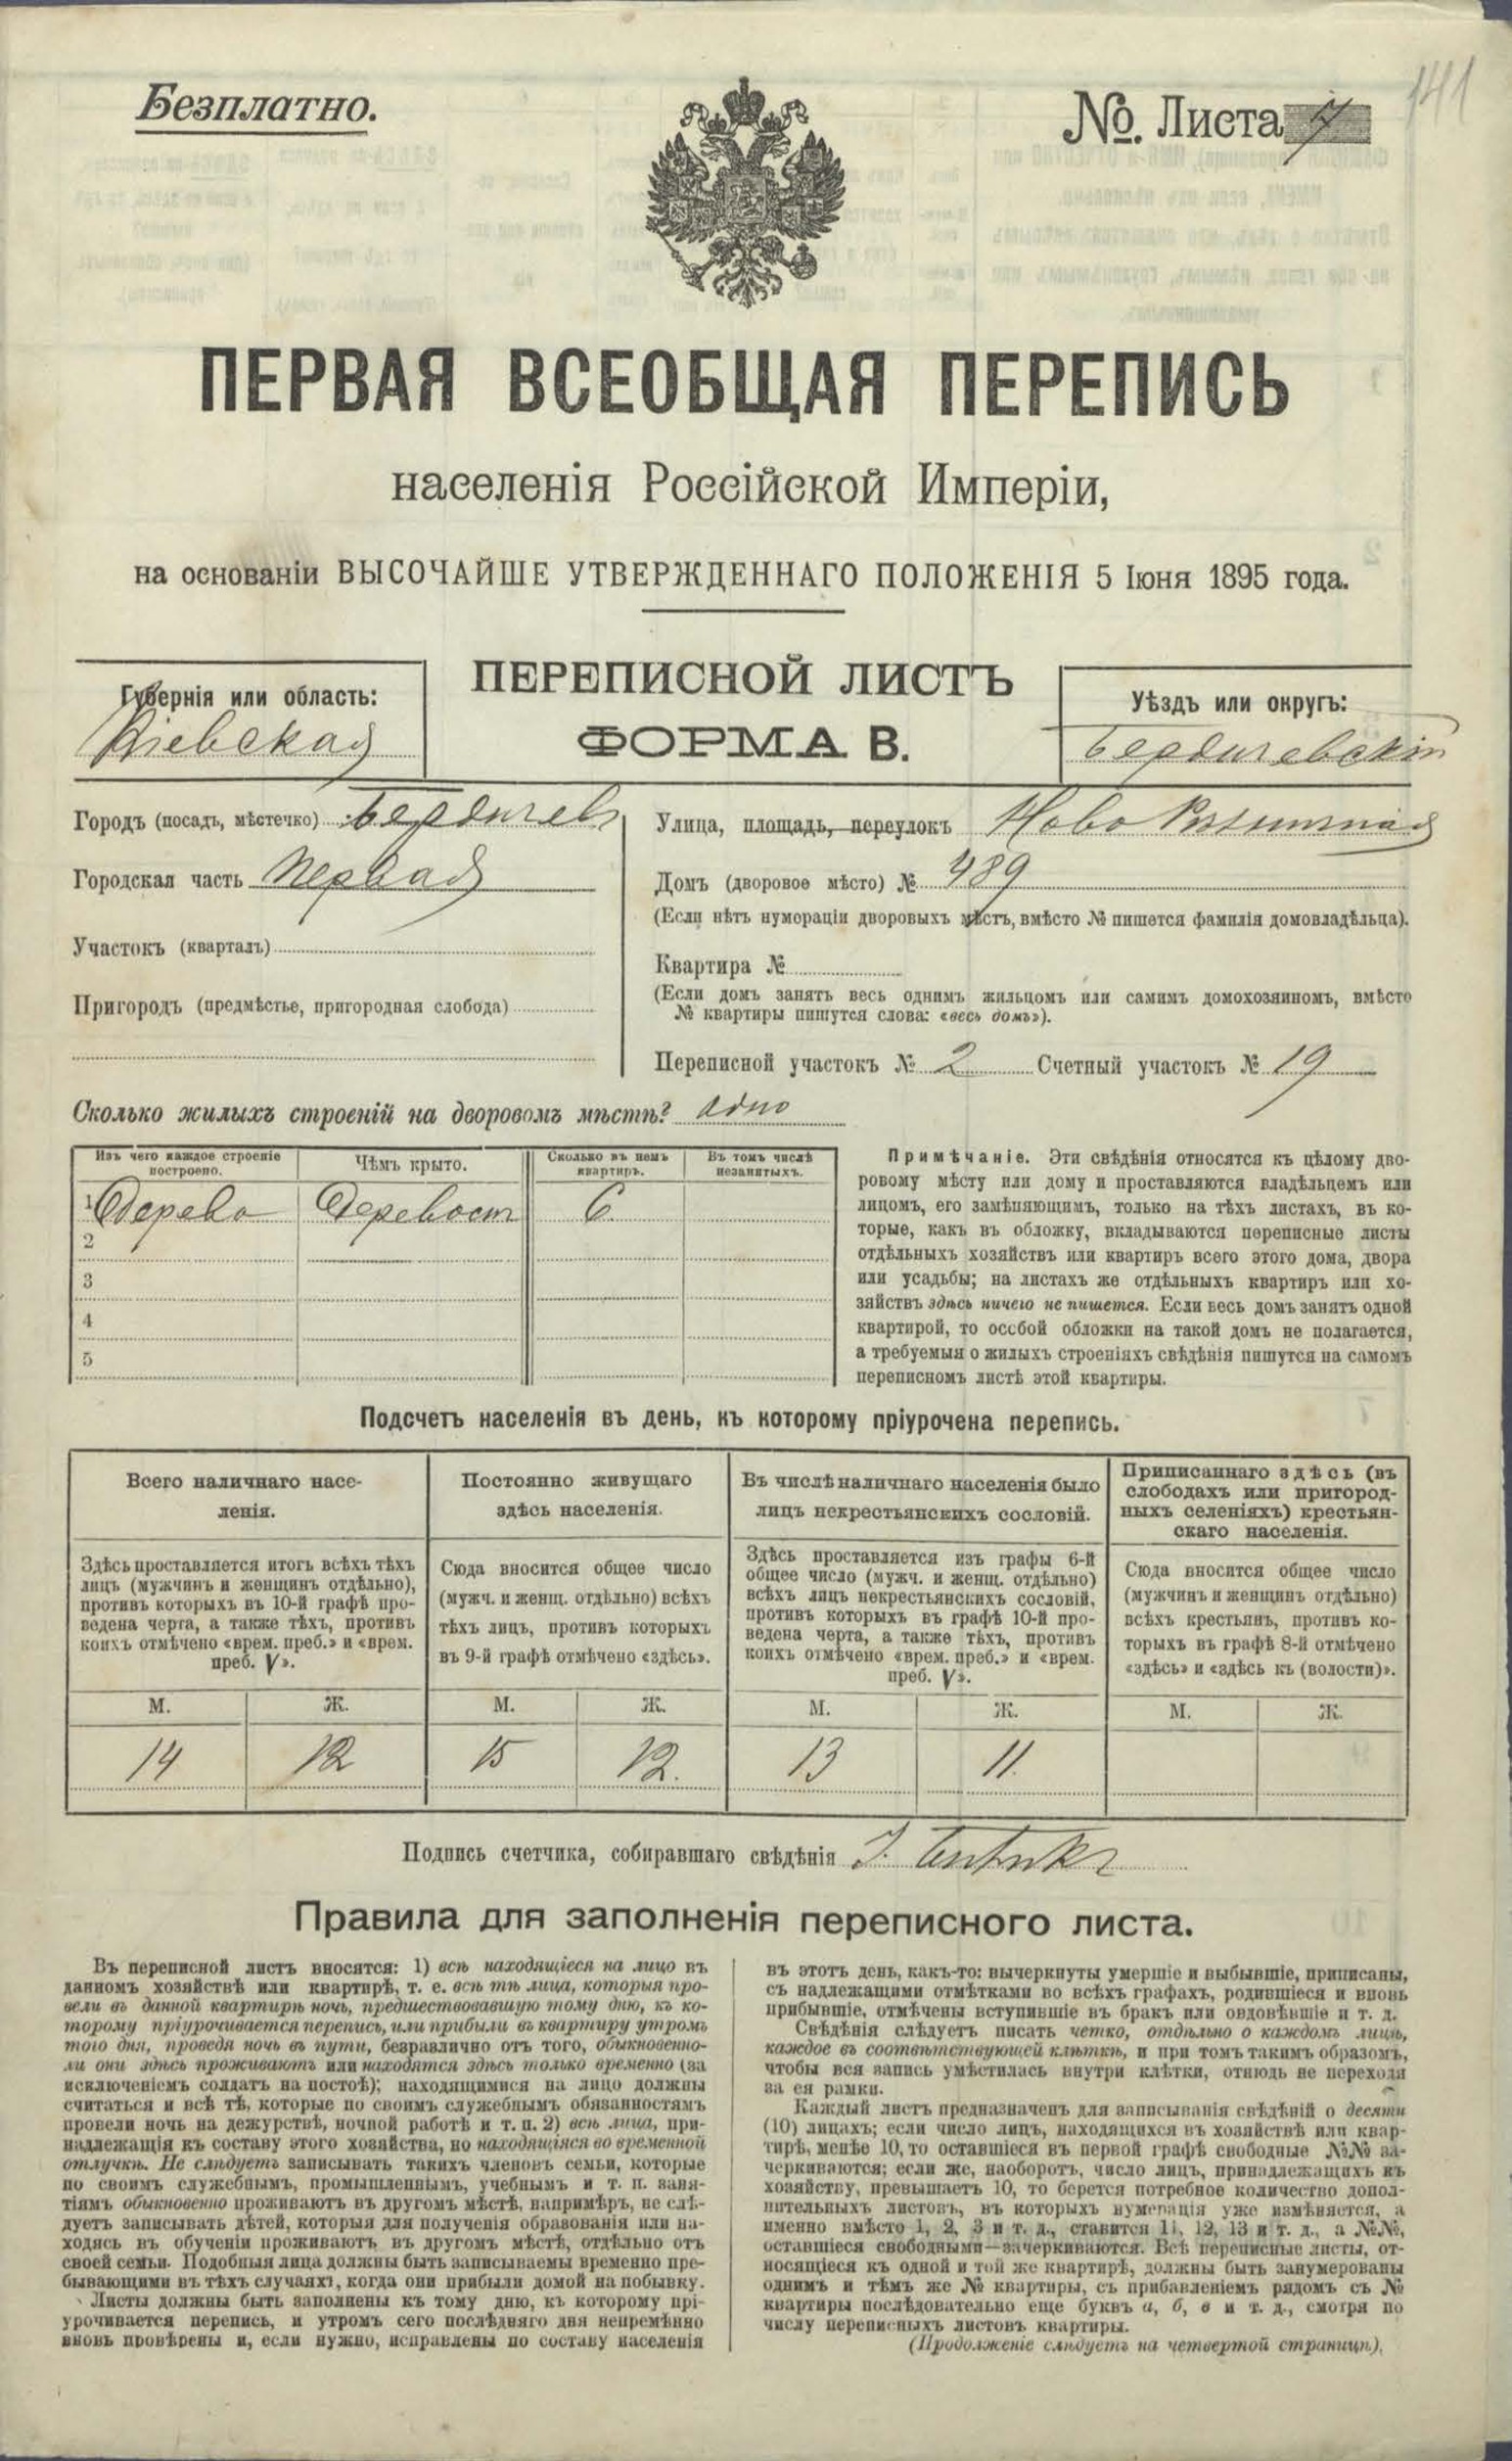 141
Безплатно.
№. Листа 7
ПЕРВАЯ ВСЕОБЩАЯ ПЕРЕПИСЬ
населенія Россійской Имперіи,
на основаніи ВЫСОЧАЙШЕ УТВЕРЖДЕННАГО ПОЛОЖЕНІЯ 5 Іюня 1895 года.
ПЕРЕПИСНОЙ ЛИСТЪ
ФОРМА В.
Губернія или область:
Кіевская
Уѣздъ или округъ:
Бердичевскій
Городъ (посадъ, мѣстечко) Бердичевъ
Городская часть Первая
Участокъ (кварталъ)
Пригородъ (предмѣстье, пригородная слобода)
Улица, площадь, переулокъ Ново
Домъ (дворовое мѣсто) № 489
(Если нѣтъ нумораціи дворовыхъ мѣстъ, вмѣсто № пишется фамилія домовладѣльца).
Квартира №
(Если домъ занятъ весь однимъ жильцомъ или самимъ домохозяиномъ, вмѣсто
№ квартиры пишутся слова: «весь домъ»).
Переписной участокъ № 2 Счетный участокъ № 19
Сколько жилыхъ строеній на дворовомъ мѣстѣ? одно
Изъ чего каждое строеніе построено.
Чѣмъ крыто.
Сколько въ немъ квартиръ.
Въ томъ числѣ незанятыхъ.
1 Дерево
6
2
3
4
5
Примѣчаніе. Эти свѣдѣнія относятся къ цѣлому дво-
ровому мѣсту или дому и проставляются владѣльцемъ или
лицомъ, его замѣняющимъ, только на тѣхъ листахъ, въ ко-
торые, какъ въ обложку, вкладываются переписные листы
отдѣльныхъ хозяйствъ или квартиръ всего этого дома, двора
или усадьбы; на листахъ же отдѣльныхъ квартиръ или хо-
зяйствъ здѣсь ничего не пишется. Если весь домъ занятъ одной
квартирой, то особой обложки на такой домъ не полагается,
а требуемыя о жилыхъ строеніяхъ свѣдѣнія пишутся на самомъ
переписномъ листѣ этой квартиры.
Подсчетъ населенія въ день, къ которому пріурочена перепись.
Всего наличнаго насе-
ленія.
Здѣсь проставляется итогъ всѣхъ тѣхъ
лицъ (мужчинъ и женщинъ отдѣльно),
противъ которыхъ въ 10-й графѣ про-
ведена черта, а также тѣхъ, противъ
коихъ отмѣчено «врем. преб.» и «врем.
преб. V».
М. Ж.
14 12
Постоянно живущаго
здѣсь населенія.
Сюда вносится общее число
(мужч. и женщ. отдѣльно) всѣхъ
тѣхъ лицъ, противъ которыхъ
въ 9-й графѣ отмѣчено «здѣсь».
М. Ж.
15 12.
Въ числѣ наличнаго населенія было
лицъ некрестьянскихъ сословій.
Здѣсь проставляется изъ графы 6-й
общее число (мужч. и женщ. отдѣльно)
всѣхъ лицъ некрестьянскихъ сословій,
противъ которыхъ въ графѣ 10-й про-
ведена черта, а также тѣхъ, противъ
коихъ отмѣчено «врем. преб.» и «врем.
преб. V».
М. Ж.
13 11
Приписаннаго здѣсь (въ
слободахъ или пригород-
ныхъ селеніяхъ) крестьян-
скаго населенія.
Сюда вносится общее число
(мужчинъ и женщинъ отдѣльно)
всѣхъ крестьянъ, противъ ко-
торыхъ въ графѣ 8-й отмѣчено
«здѣсь» и «здѣсь къ (волости)».
М. Ж.
Подпись счетчика, собиравшаго свѣдѣнія
Правила для заполненія переписного листа.
Въ переписной листъ вносятся: 1) всѣ находящіеся на лицо въ
данномъ хозяйствѣ или квартирѣ, т. е. всѣ тѣ лица, которыя про-
вели въ данной квартирѣ ночь, предшествовавшую тому дню, къ ко-
торому пріурочивается перепись, или прибыли въ квартиру утромъ
того дня, проведя ночь въ пути, безразлично отъ того, обыкновенно-
ли они здѣсь проживаютъ или находятся здѣсь только временно (за
исключеніемъ солдатъ на постоѣ); находящимися на лицо должны
считаться и всѣ тѣ, которые по своимъ служебнымъ обязанностямъ
провели ночь на дежурствѣ, ночной работѣ и т. п. 2) всѣ лица, при-
надлежащія къ составу этого хозяйства, но находящіяся во временной
отлучкѣ. Не слѣдуетъ записывать такихъ членовъ семьи, которые
по своимъ служебнымъ, промышленнымъ, учебнымъ и т. п. заня-
тіямъ обыкновенно проживаютъ въ другомъ мѣстѣ, напримѣръ, не слѣ-
дуетъ записывать дѣтей, которыя для полученія образованія или на-
ходясь въ обученіи проживаютъ въ другомъ мѣстѣ, отдѣльно отъ
своей семьи. Подобныя лица должны быть записываемы временно пре-
бывающими въ тѣхъ случаяхъ, когда они прибыли домой на побывку.
Листы должны быть заполнены къ тому дню, къ которому прі-
урочивается перепись, и утромъ сего послѣдняго дня непремѣнно
вновь провѣрены и, если нужно, исправлены по составу населенія
въ этотъ день, какъ-то: вычеркнуты умершіе и выбывшіе, приписаны,
съ надлежащими отмѣтками во всѣхъ графахъ, родившіеся и вновь
прибывшіе, отмѣчены вступившіе въ бракъ или овдовѣвшіе и т. д.
Свѣдѣнія слѣдуетъ писать четко, отдѣльно о каждомъ лицѣ,
каждое въ соотвѣтствующей клѣткѣ, и при томъ такимъ образомъ,
чтобы вся запись умѣстилась внутри клѣтки, отнюдь не переходя
за ея рамки.
Каждый листъ предназначенъ для записыванія свѣдѣній о десяти
(10) лицахъ; если число лицъ, находящихся въ хозяйствѣ или квар-
тирѣ, менѣе 10, то оставшіеся въ первой графѣ свободные №№ за-
черкиваются; если же, наоборотъ, число лицъ, принадлежащихъ къ
хозяйству, превышаетъ 10, то берется потребное количество допол-
нительныхъ листовъ, въ которыхъ нумерація уже измѣняется, а
именно вмѣсто 1, 2, 3 и т. д., ставится 11, 12, 13 и т. д., а №№,
оставшіеся свободными—зачеркиваются. Всѣ переписные листы, от-
носящіеся къ одной и той же квартирѣ, должны быть занумерованы
однимъ и тѣмъ же № квартиры, съ прибавленіемъ рядомъ съ №
квартиры послѣдовательно еще буквъ а, б, в и т. д., смотря по
числу переписныхъ листовъ квартиры.
(Продолженіе слѣдуетъ на четвертой страницѣ).